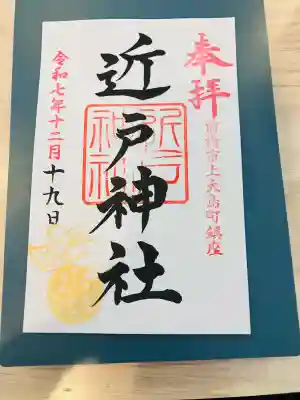 奉拝
前橋市上大島町鎮座
近戸神社
令和七年十二月十九日